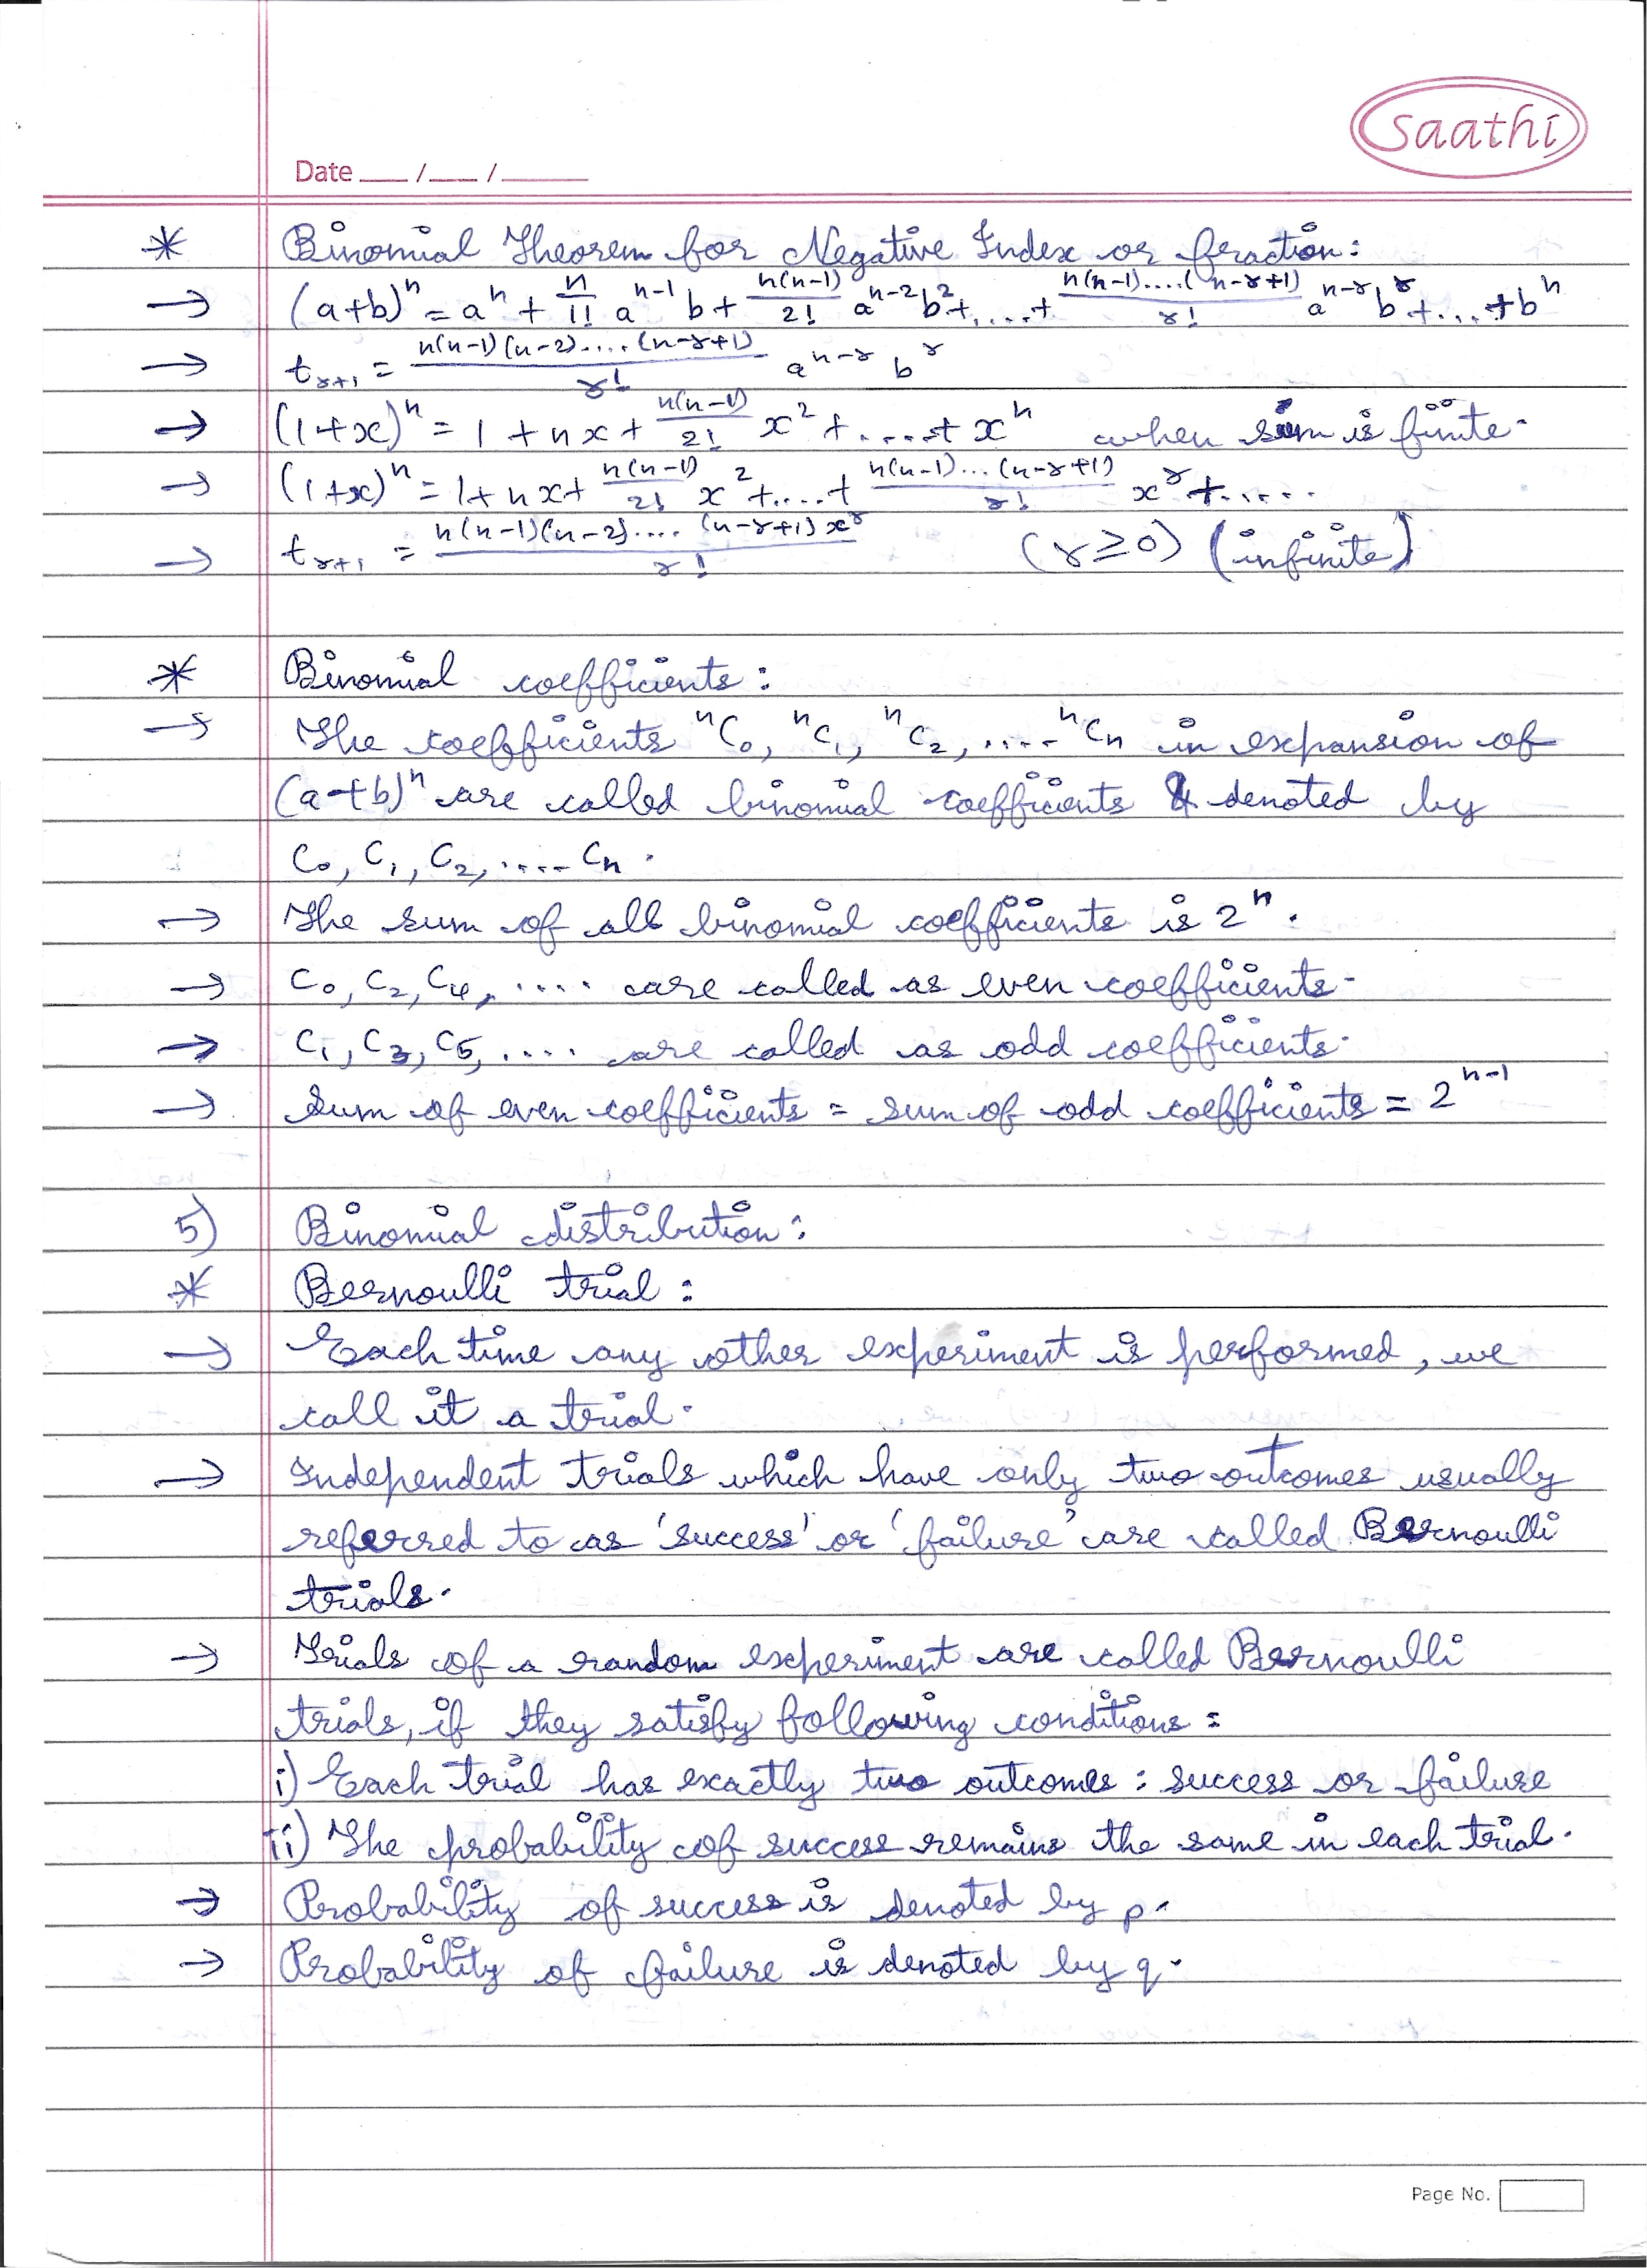 saathi
Date ___ / ___ / ______
* Binomial Theorem for Negative Index or fraction:
→ (a+b)^n = a^n + n/1! a^(n-1) b + n(n-1)/2! a^(n-2) b^2 + .... + n(n-1)....(n-r+1)/r! a^(n-r) b^r + .... + b^n
→ t_(r+1) = n(n-1)(n-2)....(n-r+1)/r! a^(n-r) b^r
→ (1+x)^n = 1 + nx + n(n-1)/2! x^2 + ..... + x^n when sum is finite.
→ (1+x)^n = 1 + nx + n(n-1)/2! x^2 + ..... + n(n-1)...(n-r+1)/r! x^r + .....
→ t_(r+1) = n(n-1)(n-2)....(n-r+1) x^r/r! (r≥0) (infinite)
* Binomial coefficients:
→ The coefficients ⁿC₀, ⁿC₁, ⁿC₂, ..... ⁿCₙ in expansion of
(a+b)^n are called binomial coefficients & denoted by
C₀, C₁, C₂, ..... Cₙ.
→ The sum of all binomial coefficients is 2^n.
→ C₀, C₂, C₄, .... are called as even coefficients.
→ C₁, C₃, C₅, .... are called as odd coefficients.
→ Sum of even coefficients = sum of odd coefficients = 2^(n-1)
5) Binomial distribution:
* Bernoulli trial:
→ Each time any other experiment is performed, we
call it a trial.
→ Independent trials which have only two outcomes usually
referred to as 'success' or 'failure' are called Bernoulli
trials.
→ Trials of a random experiment are called Bernoulli
trials, if they satisfy following conditions:
i) Each trial has exactly two outcomes: success or failure
ii) The probability of success remains the same in each trial.
→ Probability of success is denoted by p.
→ Probability of failure is denoted by q.
Page No.